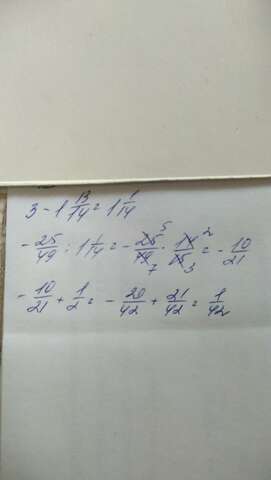 3 - 1 13/14 = 1 1/14
- 25/49 : 1 1/14 = - 25 5/49 7 · 14 2/15 3 = - 10/21
- 10/21 + 1/2 = - 20/42 + 21/42 = 1/42